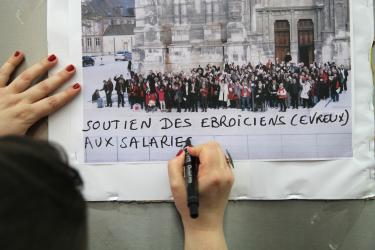 SOUTIEN DES EBROICIENS (EVREUX)
AUX SALARIES